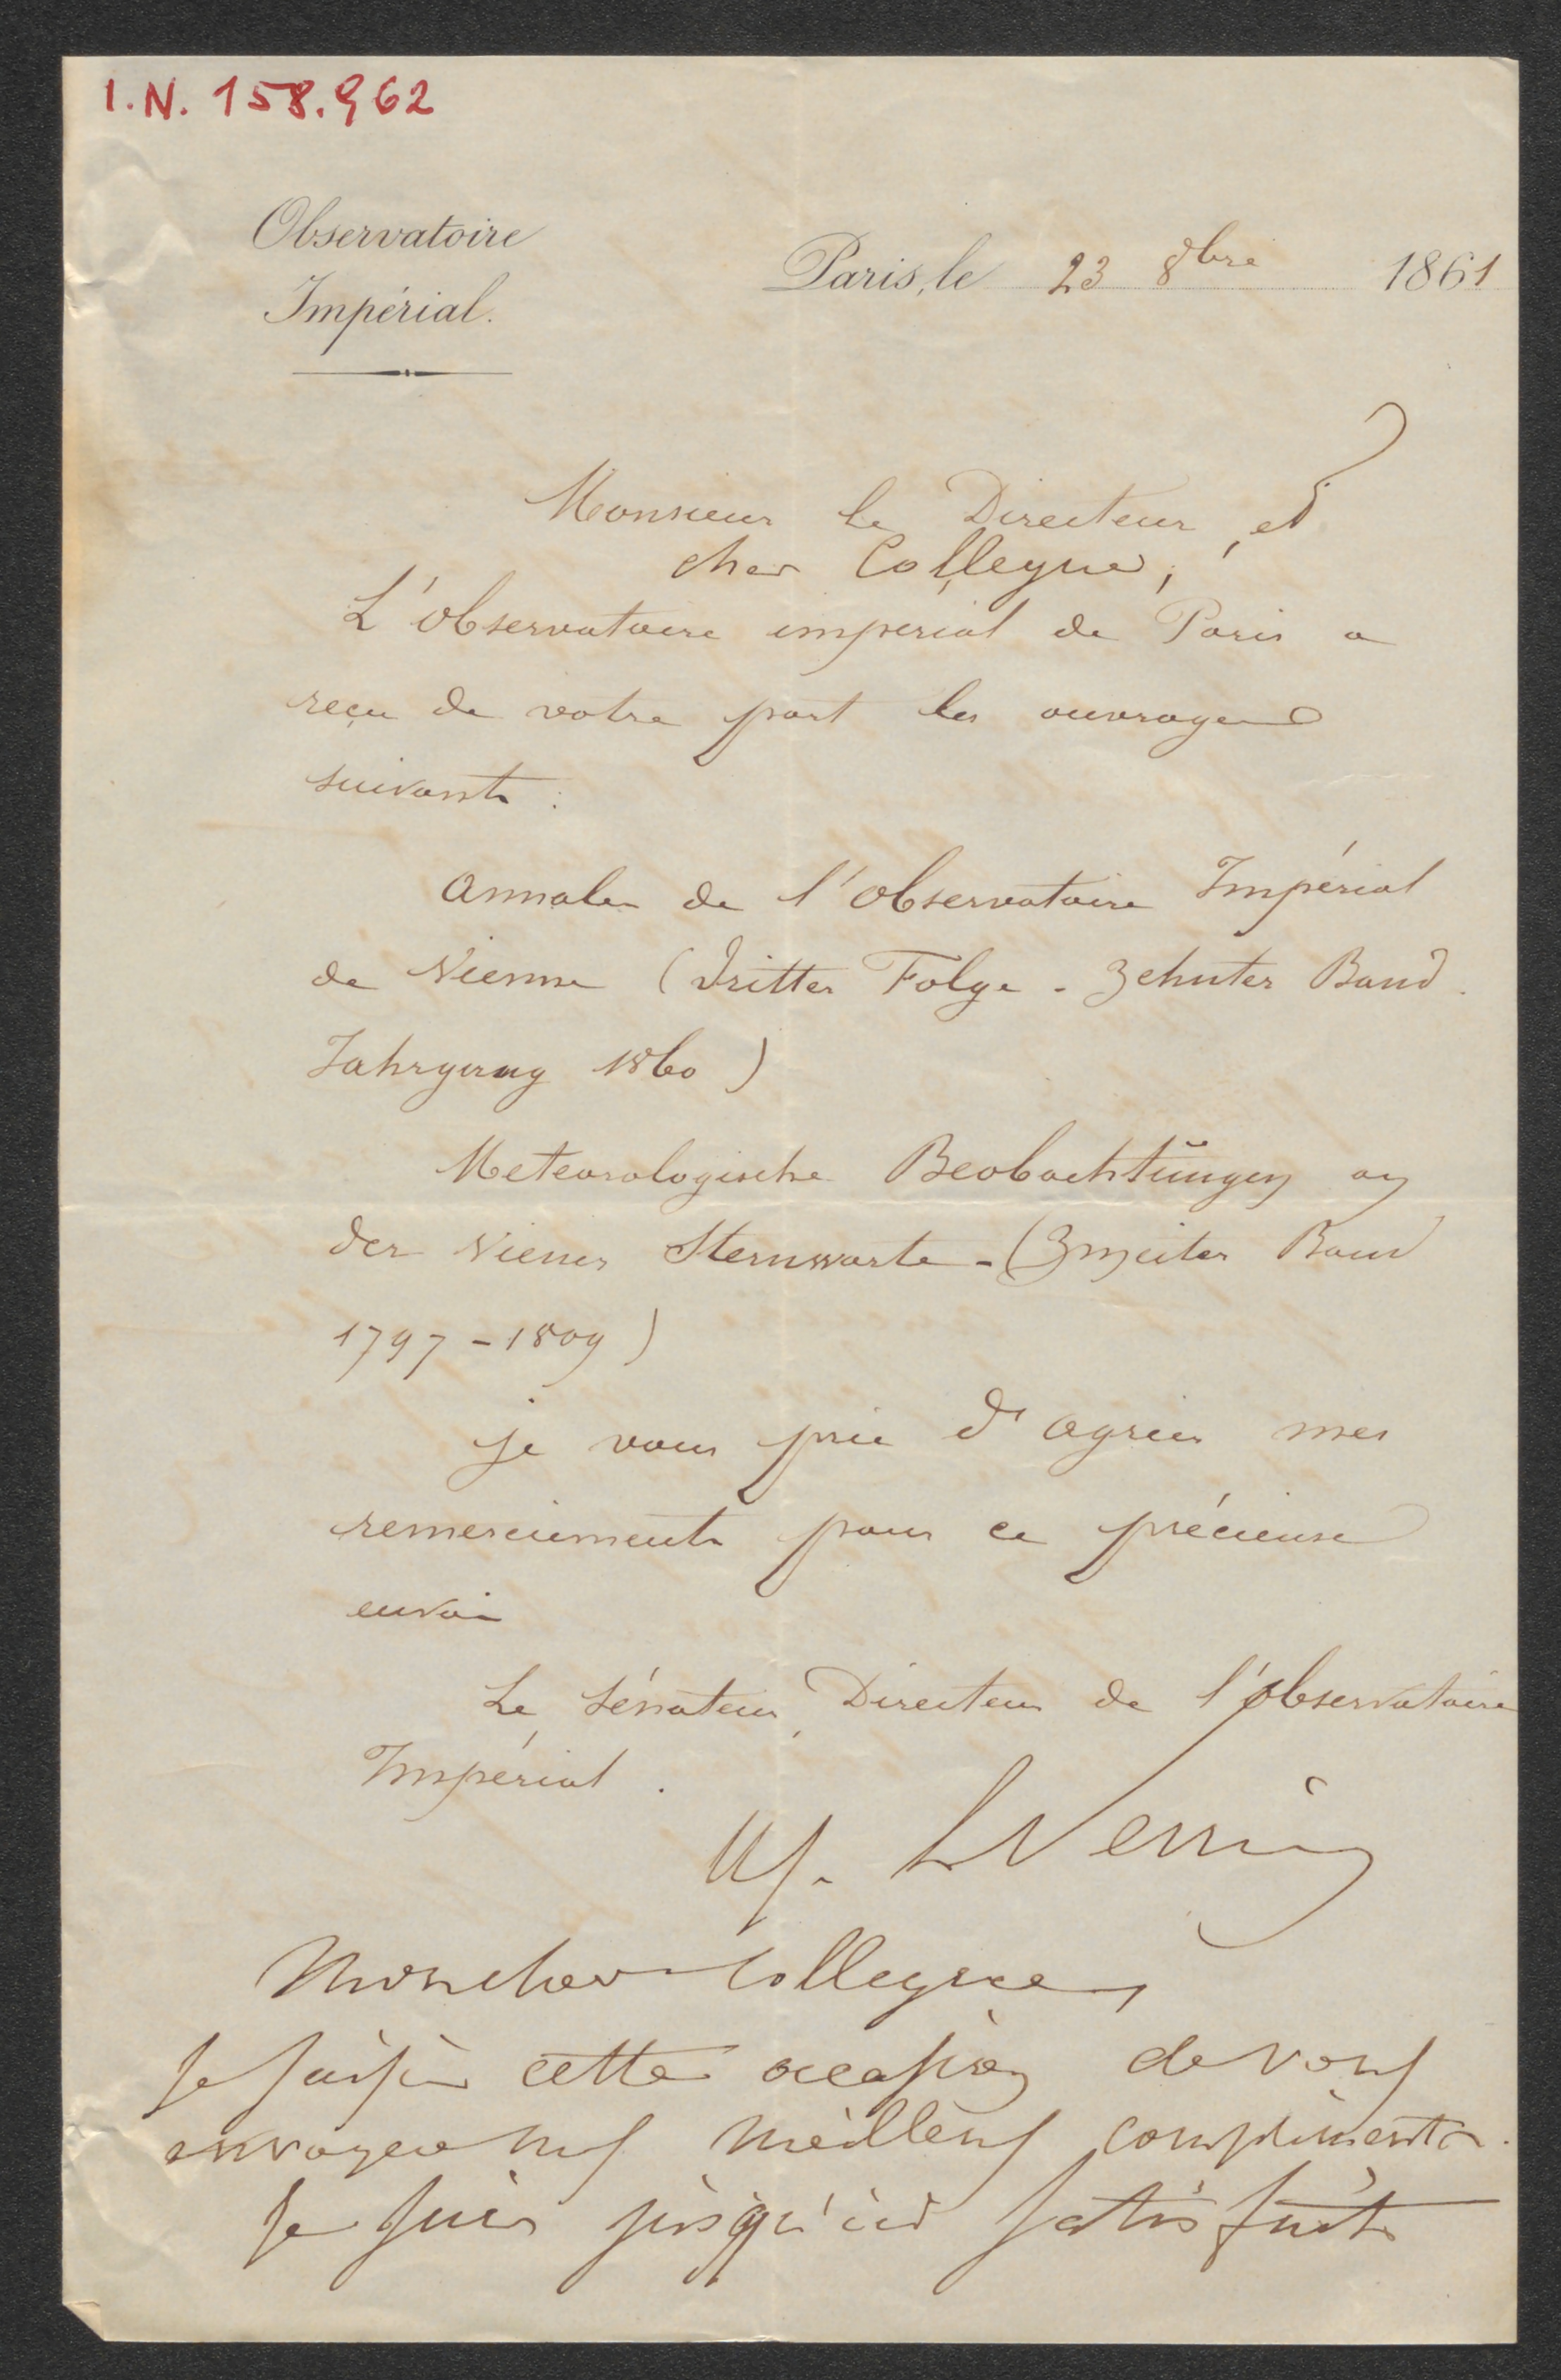 I.N. 158.962
Observatoire
Impérial.
Paris, le 23 8bre 1861
Monsieur le Directeur, et
cher Collegue,
L'observatoire imperial de Paris a
reçu de votre part les ouvrages
suivants :
Annales de l'observatoire Impérial
de Vienne (Dritter Folge - Zehnter Band.
Jahrgang 1860)
Meteorologische Beobachtŭngen an
der Wiener Sternwarte - (Zweiter Band
1797-1809)
je vous prie d'agréer mes
remerciements pour ce précieuse
envoi
Le Sénateur, Directeur de l'observatoire
Impérial.
LeVerrier
Mon cher Collegue,
Je saisis cette occasion de vous
envoyer mes meilleurs compliments.
Je suis jusqu'ici satisfait